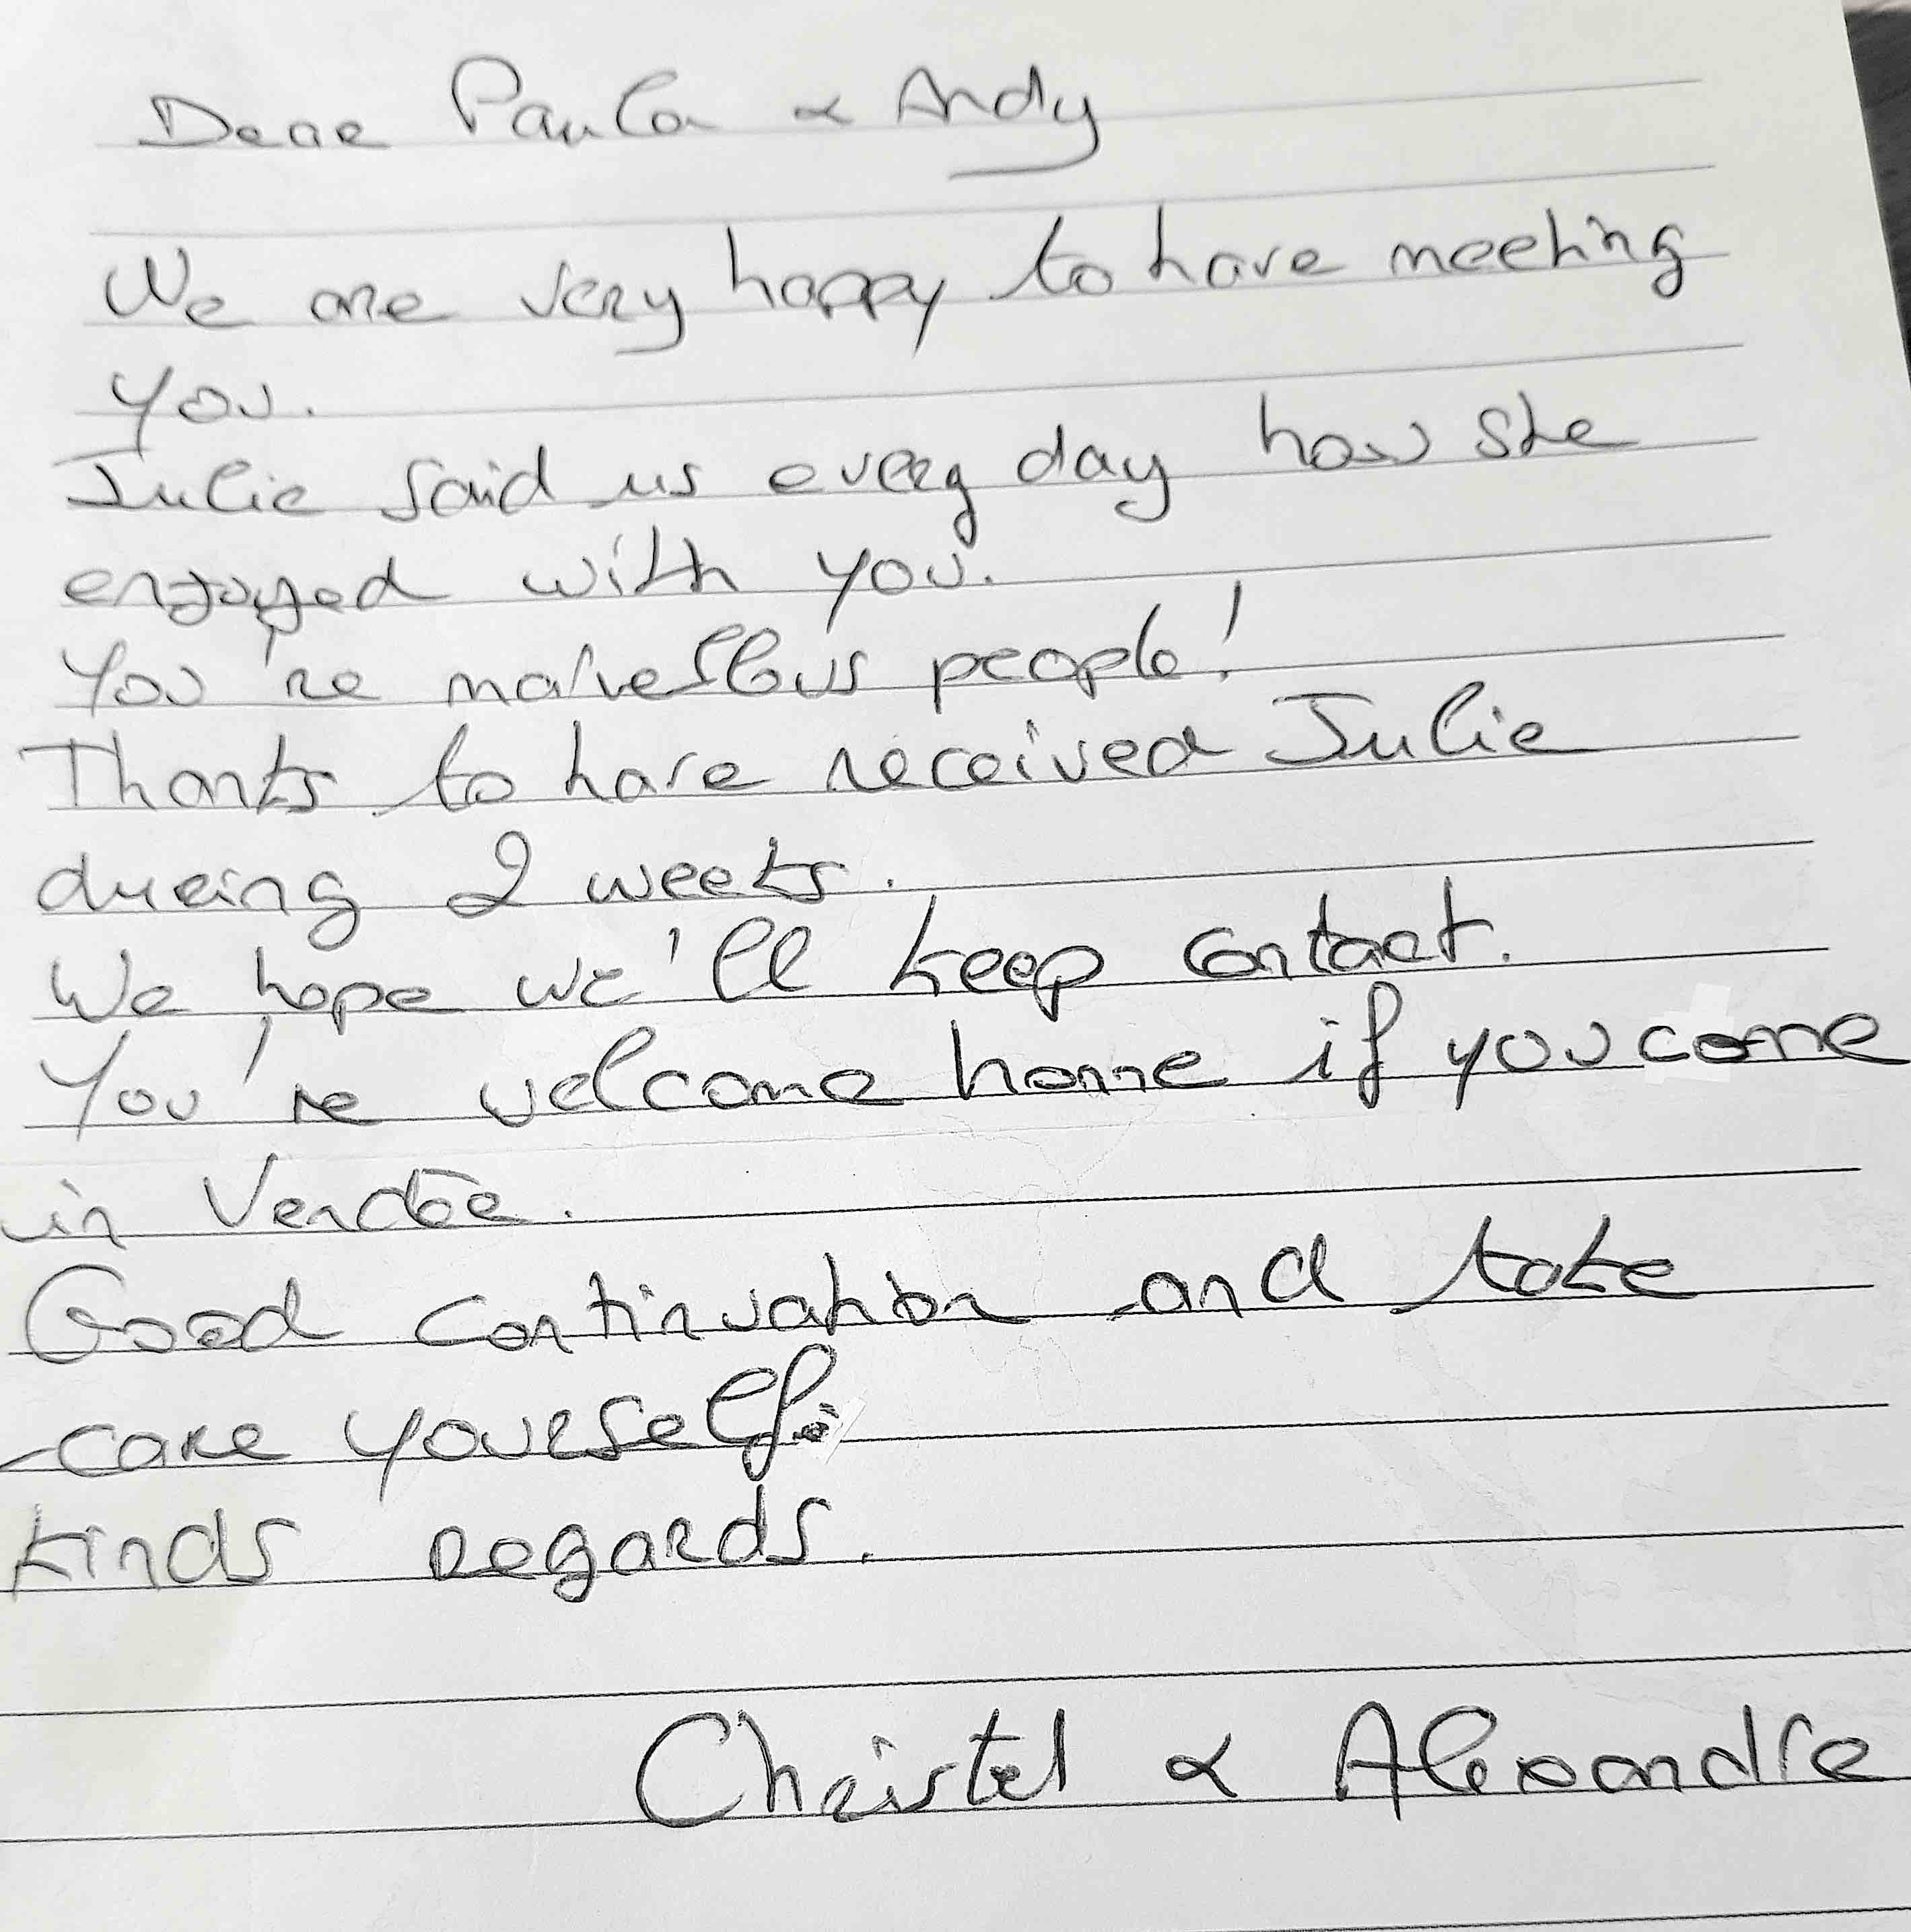 Dear Paula & Andy
We are very happy to have meeting
you.
Julie said us every day how she
enjoyed with you.
You're marvellous people!
Thanks to have received Julie
during 2 weeks.
We hope we'll keep contact.
You're welcome home if you come
in Vendée.
Good continuation and take
care yourself.
Kinds regards.
Christel & Alexandre